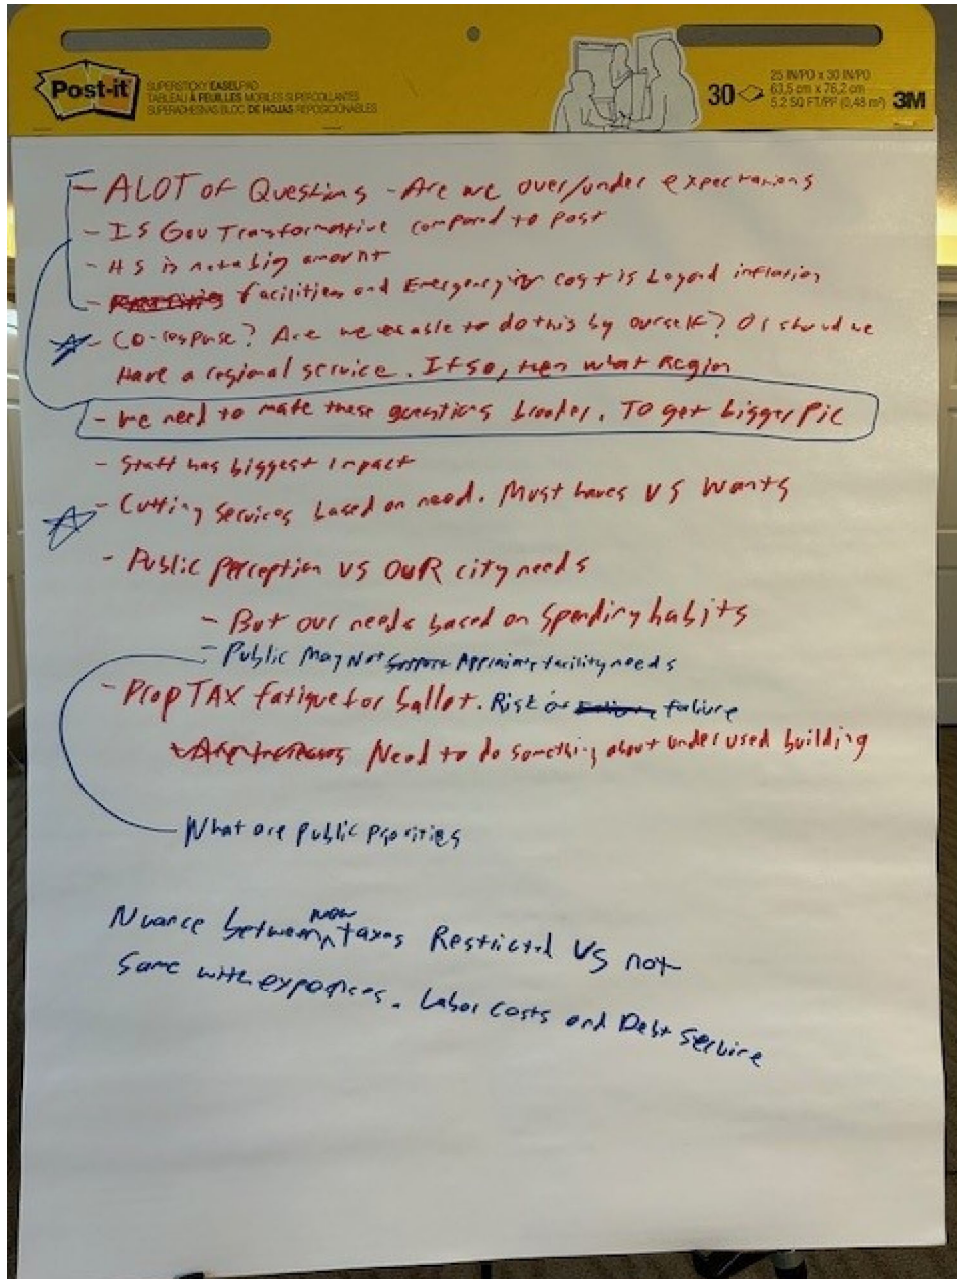 Post-it
SUPERSTICKY EASEL PAD
TABLEAU À FEUILLES MOBILES SUPERCOLLANTES
SUPERADHESIVAS BLOC DE HOJAS REPOSICIONABLES
30
25 IN/PO x 30 IN/PO
63,5 cm x 76,2 cm
5.2 SQ FT/PI² (0,48 m²)
3M
- ALOT of Questions - Are we over/under expectations
- IS Gov Transformative compared to past
- HS is not a big amount
- Facilities and Emergency cost is beyond inflation
- Co-response? Are we able to do this by ourself? Or should we
Have a regional service. If so, then what Region
- We need to make these questions broader. To get bigger Pic
- Staff has biggest impact
- Cutting Services based on need. Must haves VS Wants
- Public perception VS OUR city needs
- But our needs based on Spending habits
- Public May Not Support Appropriate facility needs
- Prop TAX fatigue for ballot. Risk of failure
Need to do something about under used building
What are Public Priorities
Nuance between now taxes Restricted VS not
Same with expenses. Labor costs and Debt Service